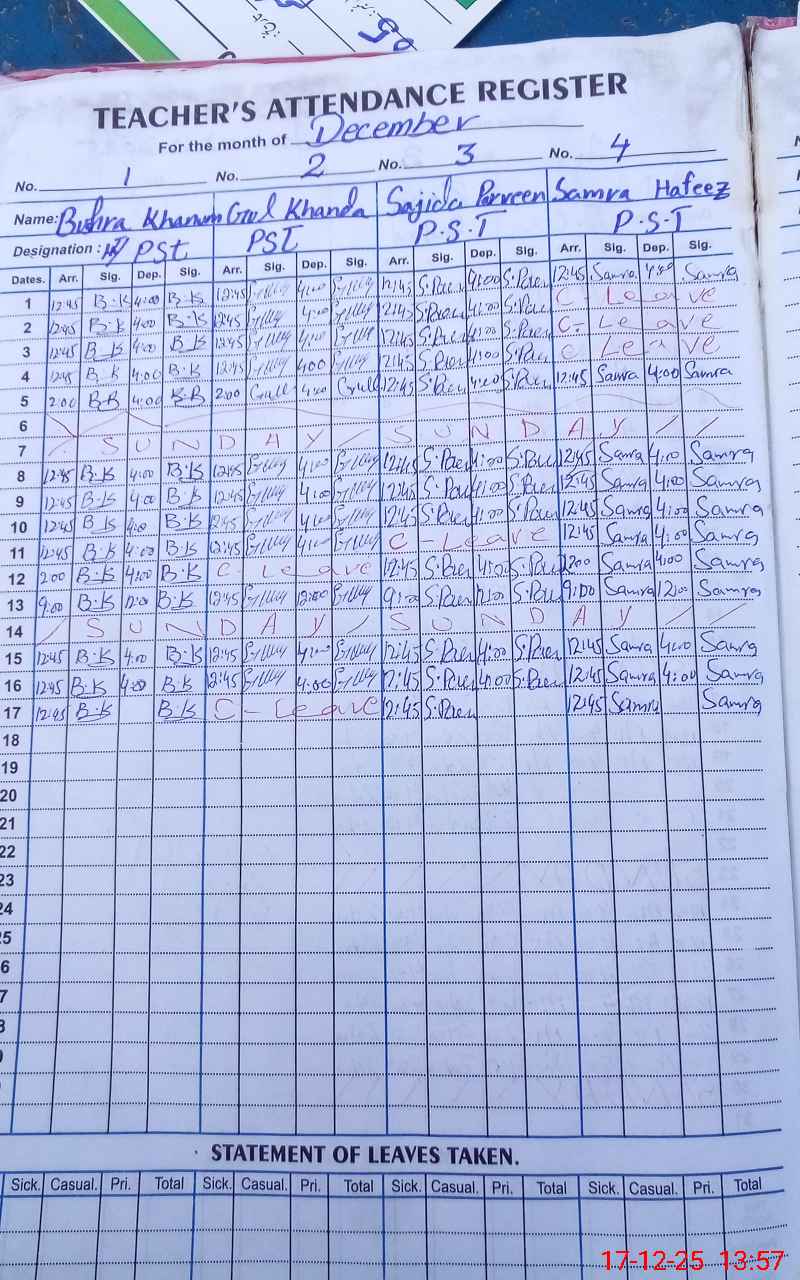 TEACHER'S ATTENDANCE REGISTER
For the month of December
No. 1 No. 2 No. 3 No. 4
Name: Bushra Khanum Gul Khanda Sajida Parveen Samra Hafeez
Designation : PST PST P.S.T P.S.T
Dates. Arr. Sig. Dep. Sig. Arr. Sig. Dep. Sig. Arr. Sig. Dep. Sig. Arr. Sig. Dep. Sig.
1 12:45 B.K 4:00 B.K 12:45 4:00 12:45 S.Paen 4:00 S.Paen 12:45 Samra 4:00 Samra
2 12:45 B.K 4:00 B.K 12:45 4:00 12:45 S.Paen 4:00 S.Paen C- Leave
3 12:45 B.K 4:00 B.K 12:45 4:00 12:45 S.Paen 4:00 S.Paen C- Leave
4 12:45 B.K 4:00 B.K 12:45 4:00 12:45 S.Paen 4:00 S.Paen C Leave
5 2:00 B.B 4:00 K.B 2:00 Gull 4:00 Gull 12:45 S.Paen 4:00 S.Paen 12:45 Samra 4:00 Samra
6
7 SUNDAY / SUNDAY / /
8 12:45 B.K 4:00 B.K 12:45 4:00 12:45 S.Paen 4:00 S.Paen 12:45 Samra 4:00 Samra
9 12:45 B.K 4:00 B.K 12:45 4:00 12:45 S.Paen 4:00 S.Paen 12:45 Samra 4:00 Samra
10 12:45 B.K 4:00 B.K 12:45 4:00 12:45 S.Paen 4:00 S.Paen 12:45 Samra 4:00 Samra
11 12:45 B.K 4:00 B.K 12:45 4:00 C-Leave 12:45 Samra 4:00 Samra
12 2:00 B.K 4:00 B.K C-Leave 12:45 S.Paen 4:00 S.Paen 1200 Samra 4:00 Samra
13 9:00 B.K 12:00 B.K 12:45 12:00 9:00 S.Paen 12:00 S.Paen 9:00 Samra 12:00 Samra
14 / SUNDAY / SUNDAY / /
15 12:45 B.K 4:00 B.K 12:45 4:00 12:45 S.Paen 4:00 S.Paen 12:45 Samra 4:00 Samra
16 12:45 B.K 4:00 B.K 12:45 4:00 12:45 S.Paen 4:00 S.Paen 12:45 Samra 4:00 Samra
17 12:45 B.K B.K C-Leave 12:45 S.Paen 12:45 Samra Samra
18
19
20
21
22
23
24
5
6
7
STATEMENT OF LEAVES TAKEN.
Sick. Casual. Pri. Total Sick. Casual. Pri. Total Sick. Casual. Pri. Total Sick. Casual. Pri. Total
17-12-25 13:57